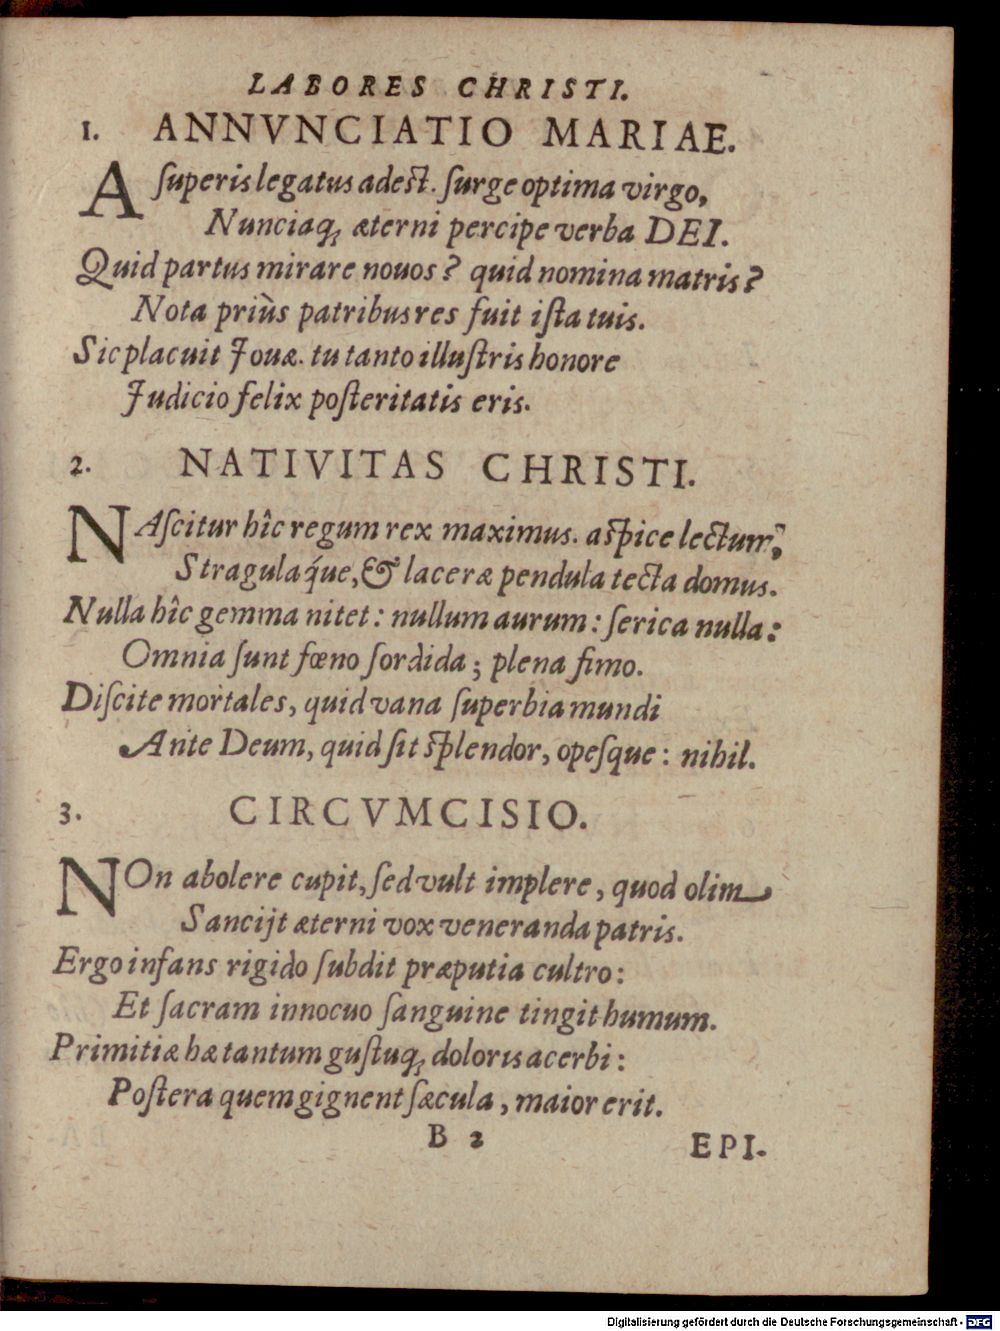 LABORES CHRISTI.
1. ANNVNCIATIO MARIAE.
A ſuperis legatus adeſt. ſurge optima virgo,
Nunciaq; æterni percipe verba DEI.
Quid partus mirare nouos? quid nomina matris?
Nota priùs patribus res fuit iſta tuis.
Sic placuit Jouæ. tu tanto illuſtris honore
Judicio felix poſteritatis eris.
2. NATIVITAS CHRISTI.
NAſcitur hîc regum rex maximus. aſpice lectum,
Stragulaq́ue, & laceræ pendula tecta domus.
Nulla hîc gemma nitet: nullum aurum: ſerica nulla:
Omnia ſunt fœno ſordida; plena fimo.
Diſcite mortales, quid vana ſuperbia mundi
Ante Deum, quid ſit ſplendor, opeſque: nihil.
3. CIRCVMCISIO.
NOn abolere cupit, ſed vult implere, quod olim
Sancijt æterni vox veneranda patris.
Ergo infans rigido ſubdit præputia cultro:
Et ſacram innocuo ſanguine tingit humum.
Primitiæ hæ tantum guſtuq; doloris acerbi:
Poſtera quem gignent ſæcula, maior erit.
B 2
EPI-
Digitalisierung gefördert durch die Deutsche Forschungsgemeinschaft - DFG